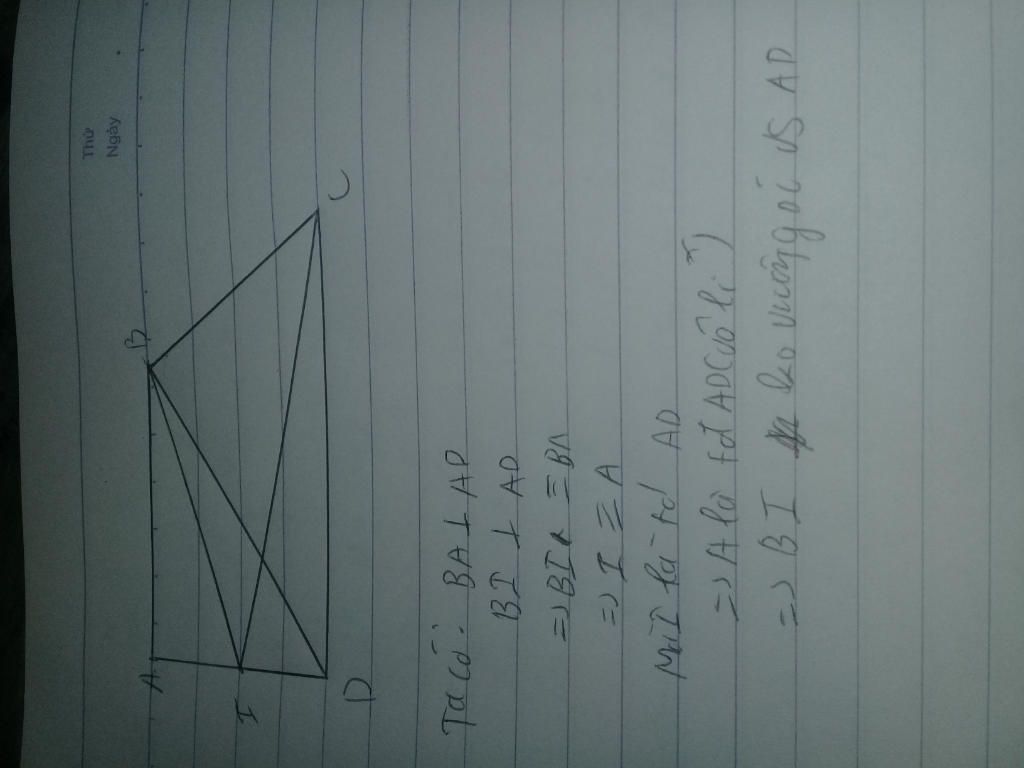 Thứ
Ngày
A
B
I
D
C
Ta có: BA ⊥ AD
BI ⊥ AD
=> BI ≡ BA
=> I ≡ A
Mà I là tđ AD
=> A là tđ AD (vô lí)
=> BI ko vuông góc vs AD